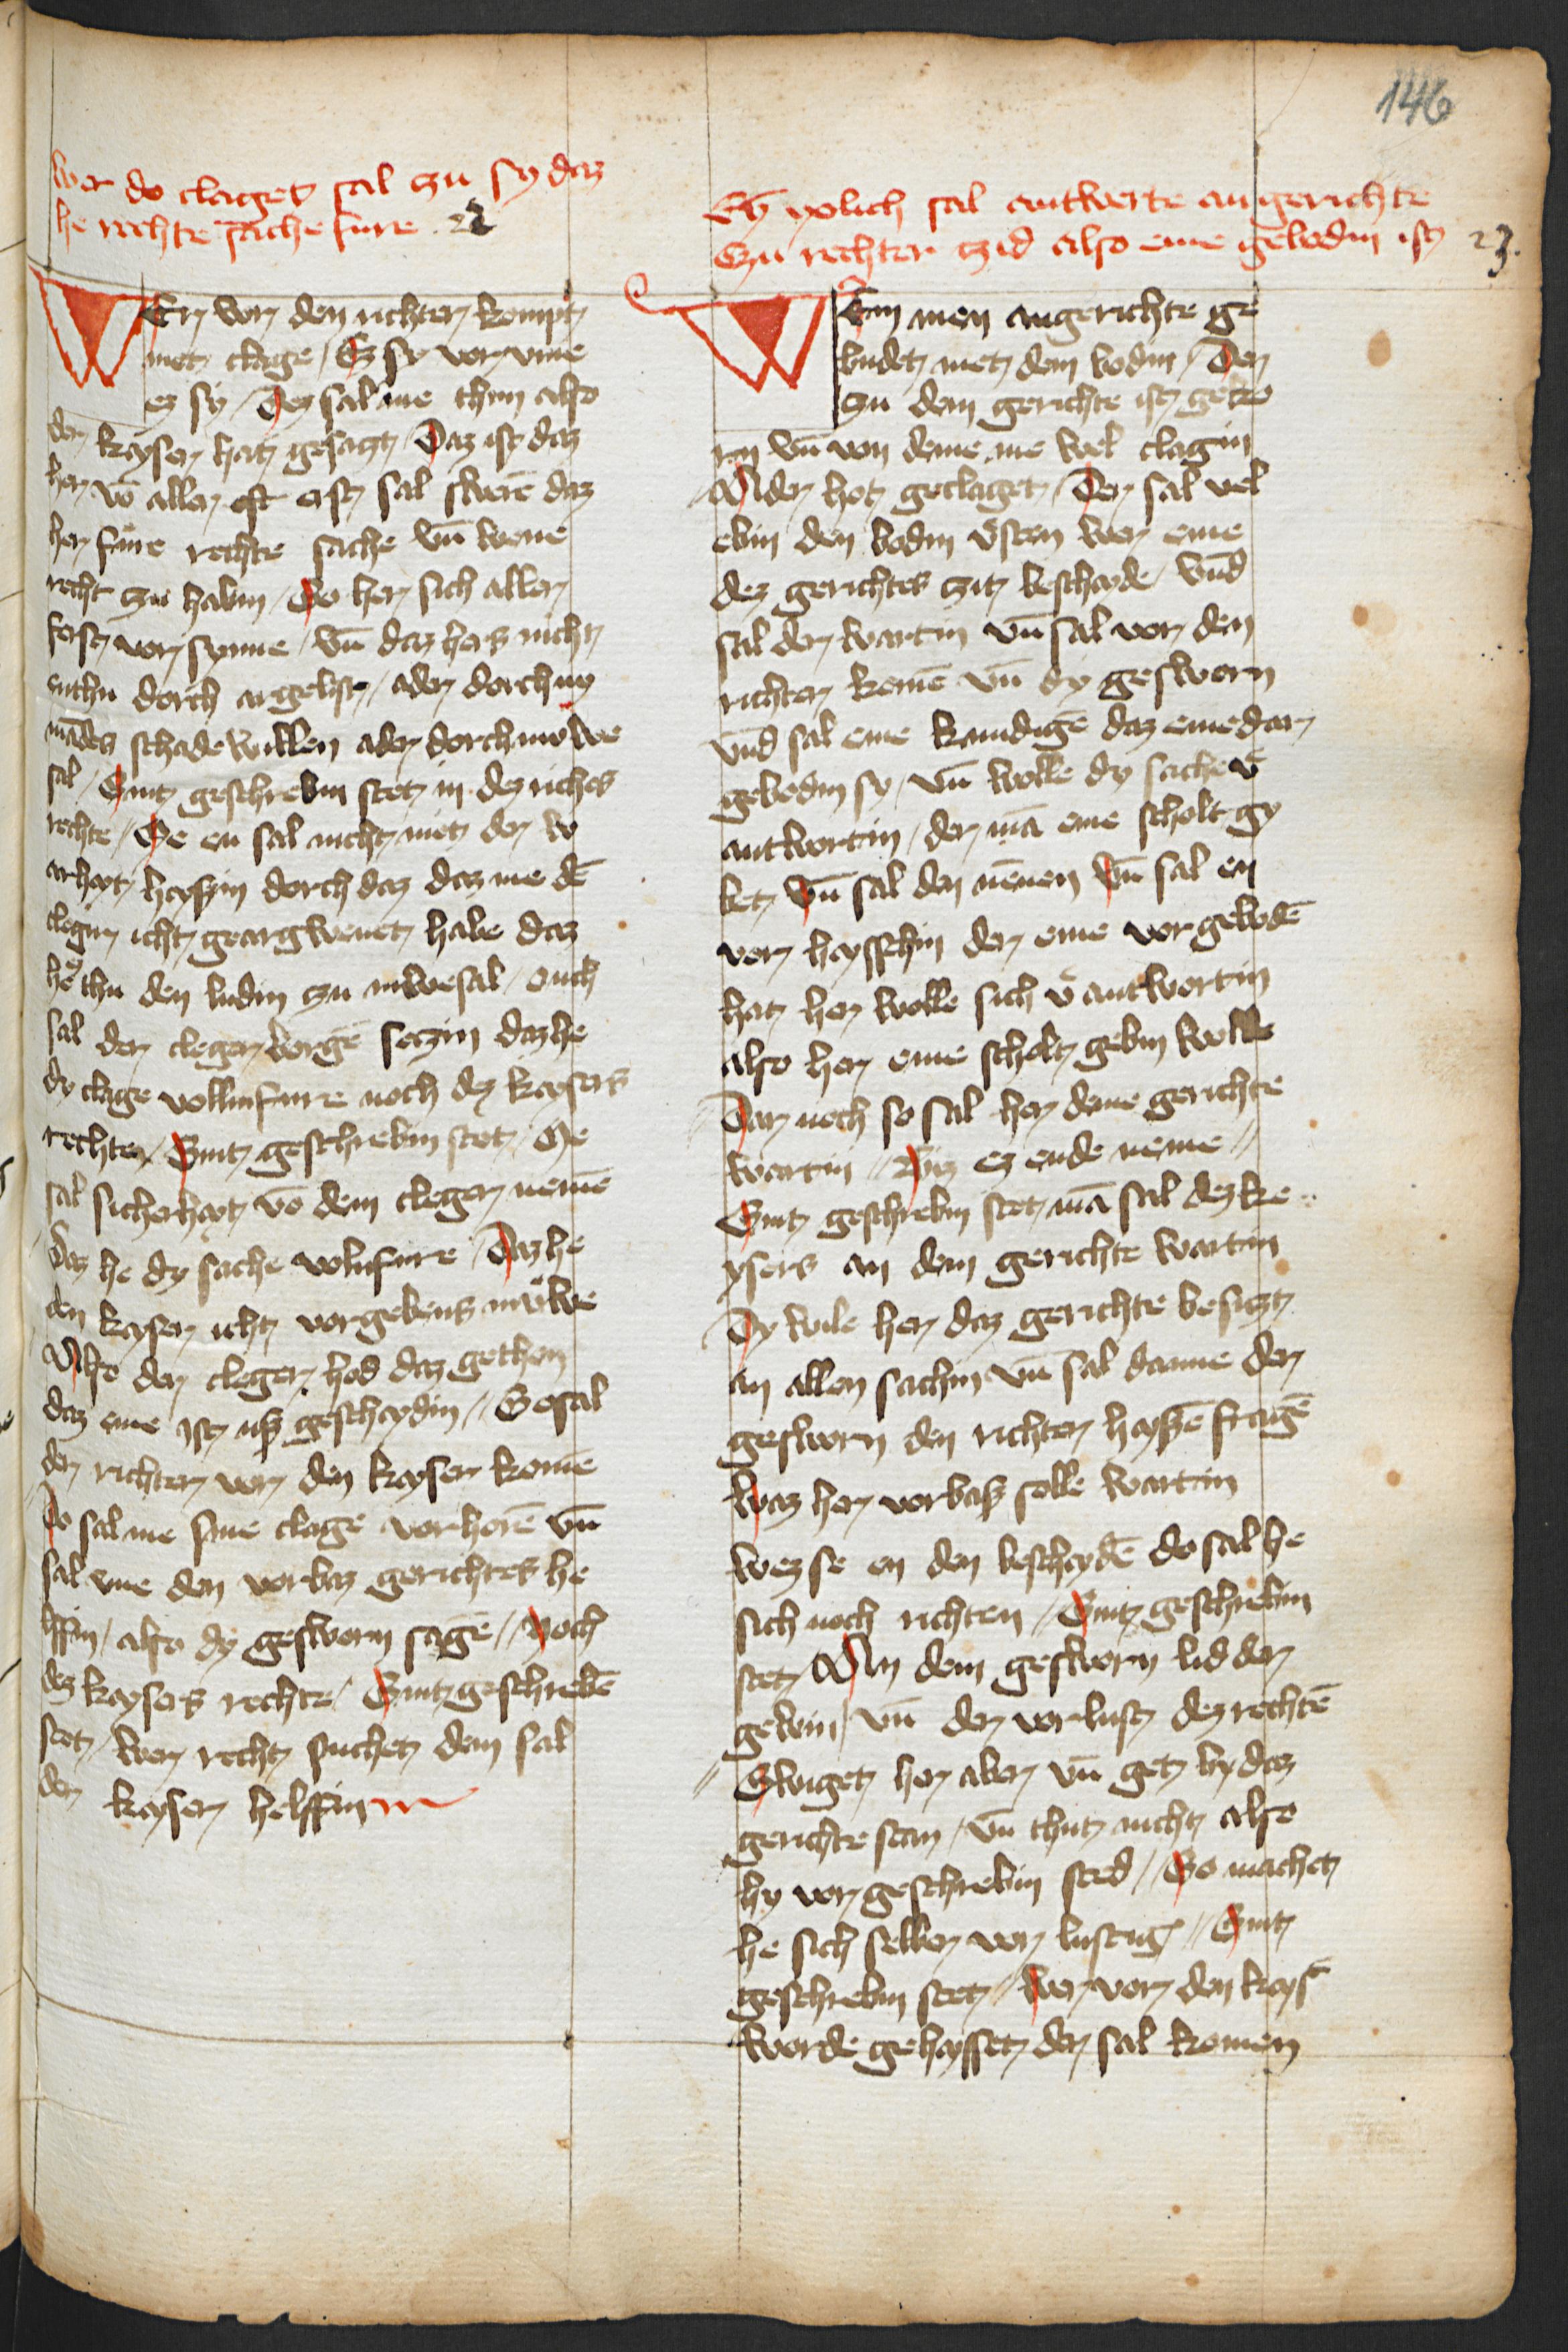 146
wer do claget sal zcu sy daz
he rechte sache fure . 22
WEr vor den richter kompt
met clage / Ez sy vor vme
ez sy / Dez sal me thun also
der kayser hat gesagt / Daz ist daz
her vō aller erst sal swerē daz
her fůre rechte sache vn̄ wene
recht zcu habin / So her sich aller
ferst vor synne / vn̄ daz hers nicht
enthu dorch argelist / ader dorch ny
mādes schade willen ader dorch mowe
sal / Sint geschrebin stet in dez riches
rechte / Me en sal nicht met der w
arhayt hayszin dorch daz daz me dē
clegin icht geargwenet habe daz
he thu den ludin zcu mwesal / ouch
sal der cleger borgē seczin daz he
dy clage vollinfure noch dez kaysers
rechten / Sint geschrebin stet / Me
sal sicherhayt vō dem cleger nemē
Daz he dy sache volnfure / Daz he
den kayser icht vorgebens můwe
Also der cleger hod daz gethon
daz eme ist usz geschaydin // So sal
der richter vor den kayser komē
Do sal me sine clage vorhorē vn̄
sal me den vorbaz gerichtes he
lffin / also dy geswornn sagē / Noch
dez kaysers rechte / Sint geschrebē
stet / wer recht suchet dem sal
der kayser helffin
Ey yolich sal antwerte an gerichte
Zcu rechter czid also eme gebodin ist 23.
WEm men an gerichte ge
budet met dem bodin / Der
zcu dem gerichte ist geko
rn vn̄ von deme me wel clagin
Ader hot geclaget / Der sal vel
ebin den bodin vʼsten wer eme
dez gerichtes czit beschayde / vnd
sal der wartin vn̄ sal vor den
richter komē vn̄ dy geswornn
vnd sal eme kundigē daz eme dar
gebodin sy / vn̄ wolle dy sache vʼ
antwortin / der mā eme scholt gy
bet vn̄ sal den nēnen vn̄ sal en
vor hayschin der eme vorgebodē
hat her wolle sich vʼantwortin
also her eme scholt gebin wolle
Dar noch so sal her deme gerichte
wartin // Biz ez ende neme //
Sint geschrebin stet mā sal dez ke
ysers an dem gerichte wartin
Dy wile her daz gerichte besiczt
an allen sachin vn̄ sal danne der
geswornn den richter hayszē fragē
waz her vorbasz solle wartin
wez se en den beschaydē do sal he
sich noch richten / Sint geschrebin
stet / An dem geswornn lid der
gewin vn̄ der vorlust dez rechtē
// Swiget her aber vn̄ get by daz
gerichte stan / vn̄ thut nicht also
hy vor geschrebin sted // So machet
he sich selber vor lustig // Sint
geschrebin stet // wer vor den kaysʼ
worde gehaysset der sal komen